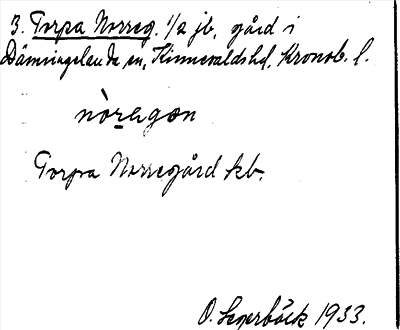 3. Torpa Norreg. 1/2 jb, gård i
Dänningelanda sn, Kinnevaldshd, Kronob. l.
nòregɷn
Torpa Norregård kb.
O. Segerbäck 1933.